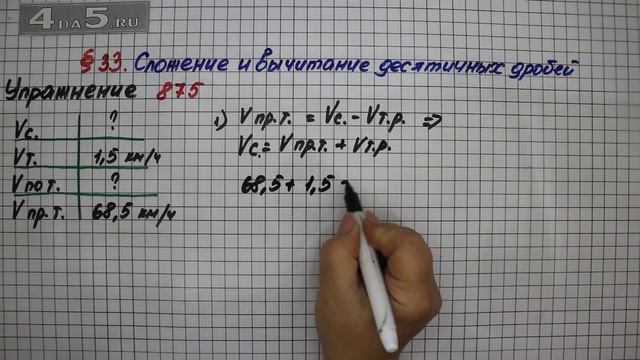 4DA5.RU
§ 33. Сложение и вычитание десятичных дробей
Упражнение 875
Vс. ?
Vт. 1,5 км/ч
Vпо т. ?
Vпр.т. 68,5 км/ч
1) Vпр.т. = Vс. - Vт.р. ⇒
Vс. = Vпр.т. + Vт.р.
68,5 + 1,5 =